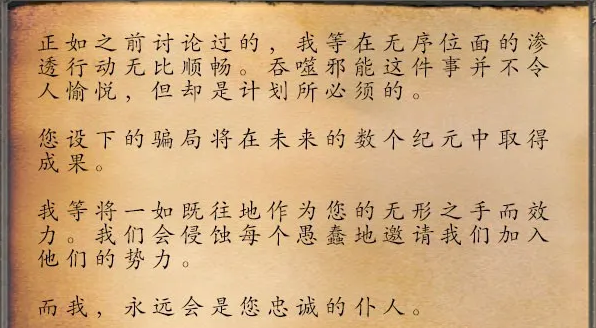 正如之前讨论过的，我等在无序位面的渗
透行动无比顺畅。吞噬邪能这件事并不令
人愉悦，但却是计划所必须的。
您设下的骗局将在未来的数个纪元中取得
成果。
我等将一如既往地作为您的无形之手而效
力。我们会侵蚀每个愚蠢地邀请我们加入
他们的势力。
而我，永远会是您忠诚的仆人。